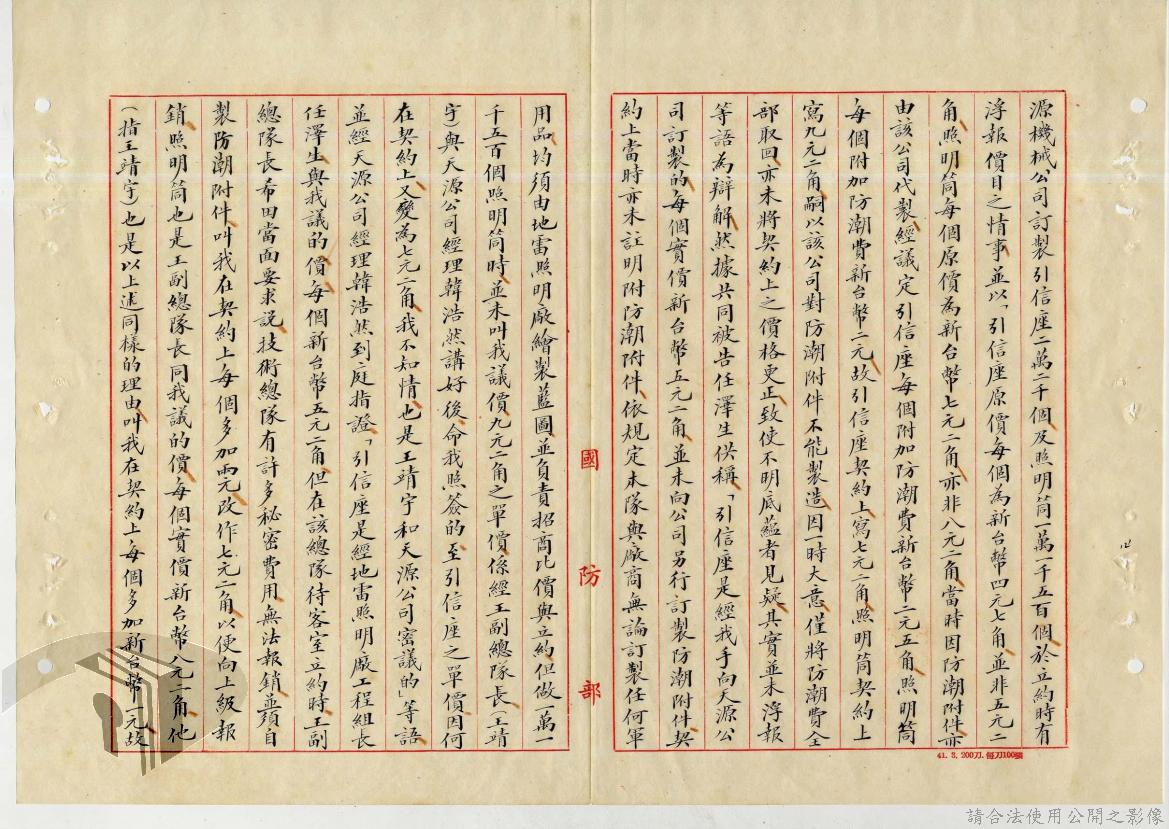 源機械公司訂製引信座二萬二千個及照明筒一萬一千五百個於立約時有
浮報價目之情事並以「引信座原價每個為新台幣四元七角並非五元二
角照明筒每個原價為新台幣七元二角亦非八元二角當時因防潮附件亦
由該公司代製經議定引信座每個附加防潮費新台幣二元五角照明筒
每個附加防潮費新台幣二元故引信座契約上寫七元二角照明筒契約上
寫九元二角嗣以該公司對防潮附件不能製造因一時大意僅將防潮費全
部取回亦未將契約上之價格更正致使不明底蘊者見疑其實並未浮報
等語為辯解然據共同被告任澤生供稱「引信座是經我手向天源公
司訂製的每個實價新台幣五元二角並未向公司另行訂製防潮附件契
約上當時亦未註明附防潮附件依規定本隊與廠商無論訂製任何軍
用品均須由地雷照明廠繪製藍圖並負責招商比價與立約但做一萬一
千五百個照明筒時並未叫我議價九元二角之單價係經王副總隊長（王靖
宇）與天源公司經理韓浩然講好後命我照簽的至引信座之單價因何
在契約上又變為七元二角我不知情也是王靖宇和天源公司密議的」等語
並經天源公司經理韓浩然到庭指證「引信座是經地雷照明廠工程組長
任澤生與我議的價每個新台幣五元二角但在該總隊待客室立約時王副
總隊長希田當面要求說技術總隊有許多秘密費用無法報銷並須自
製防潮附件叫我在契約上每個多加兩元改作七元二角以便向上級報
銷照明筒也是王副總隊長同我議的價每個實價新台幣八元二角他
（指王靖宇）也是以上述同樣的理由叫我在契約上每個多加新台幣一元故
國防部
41. 3. 200刀. 每刀100張
請合法使用公開之影像